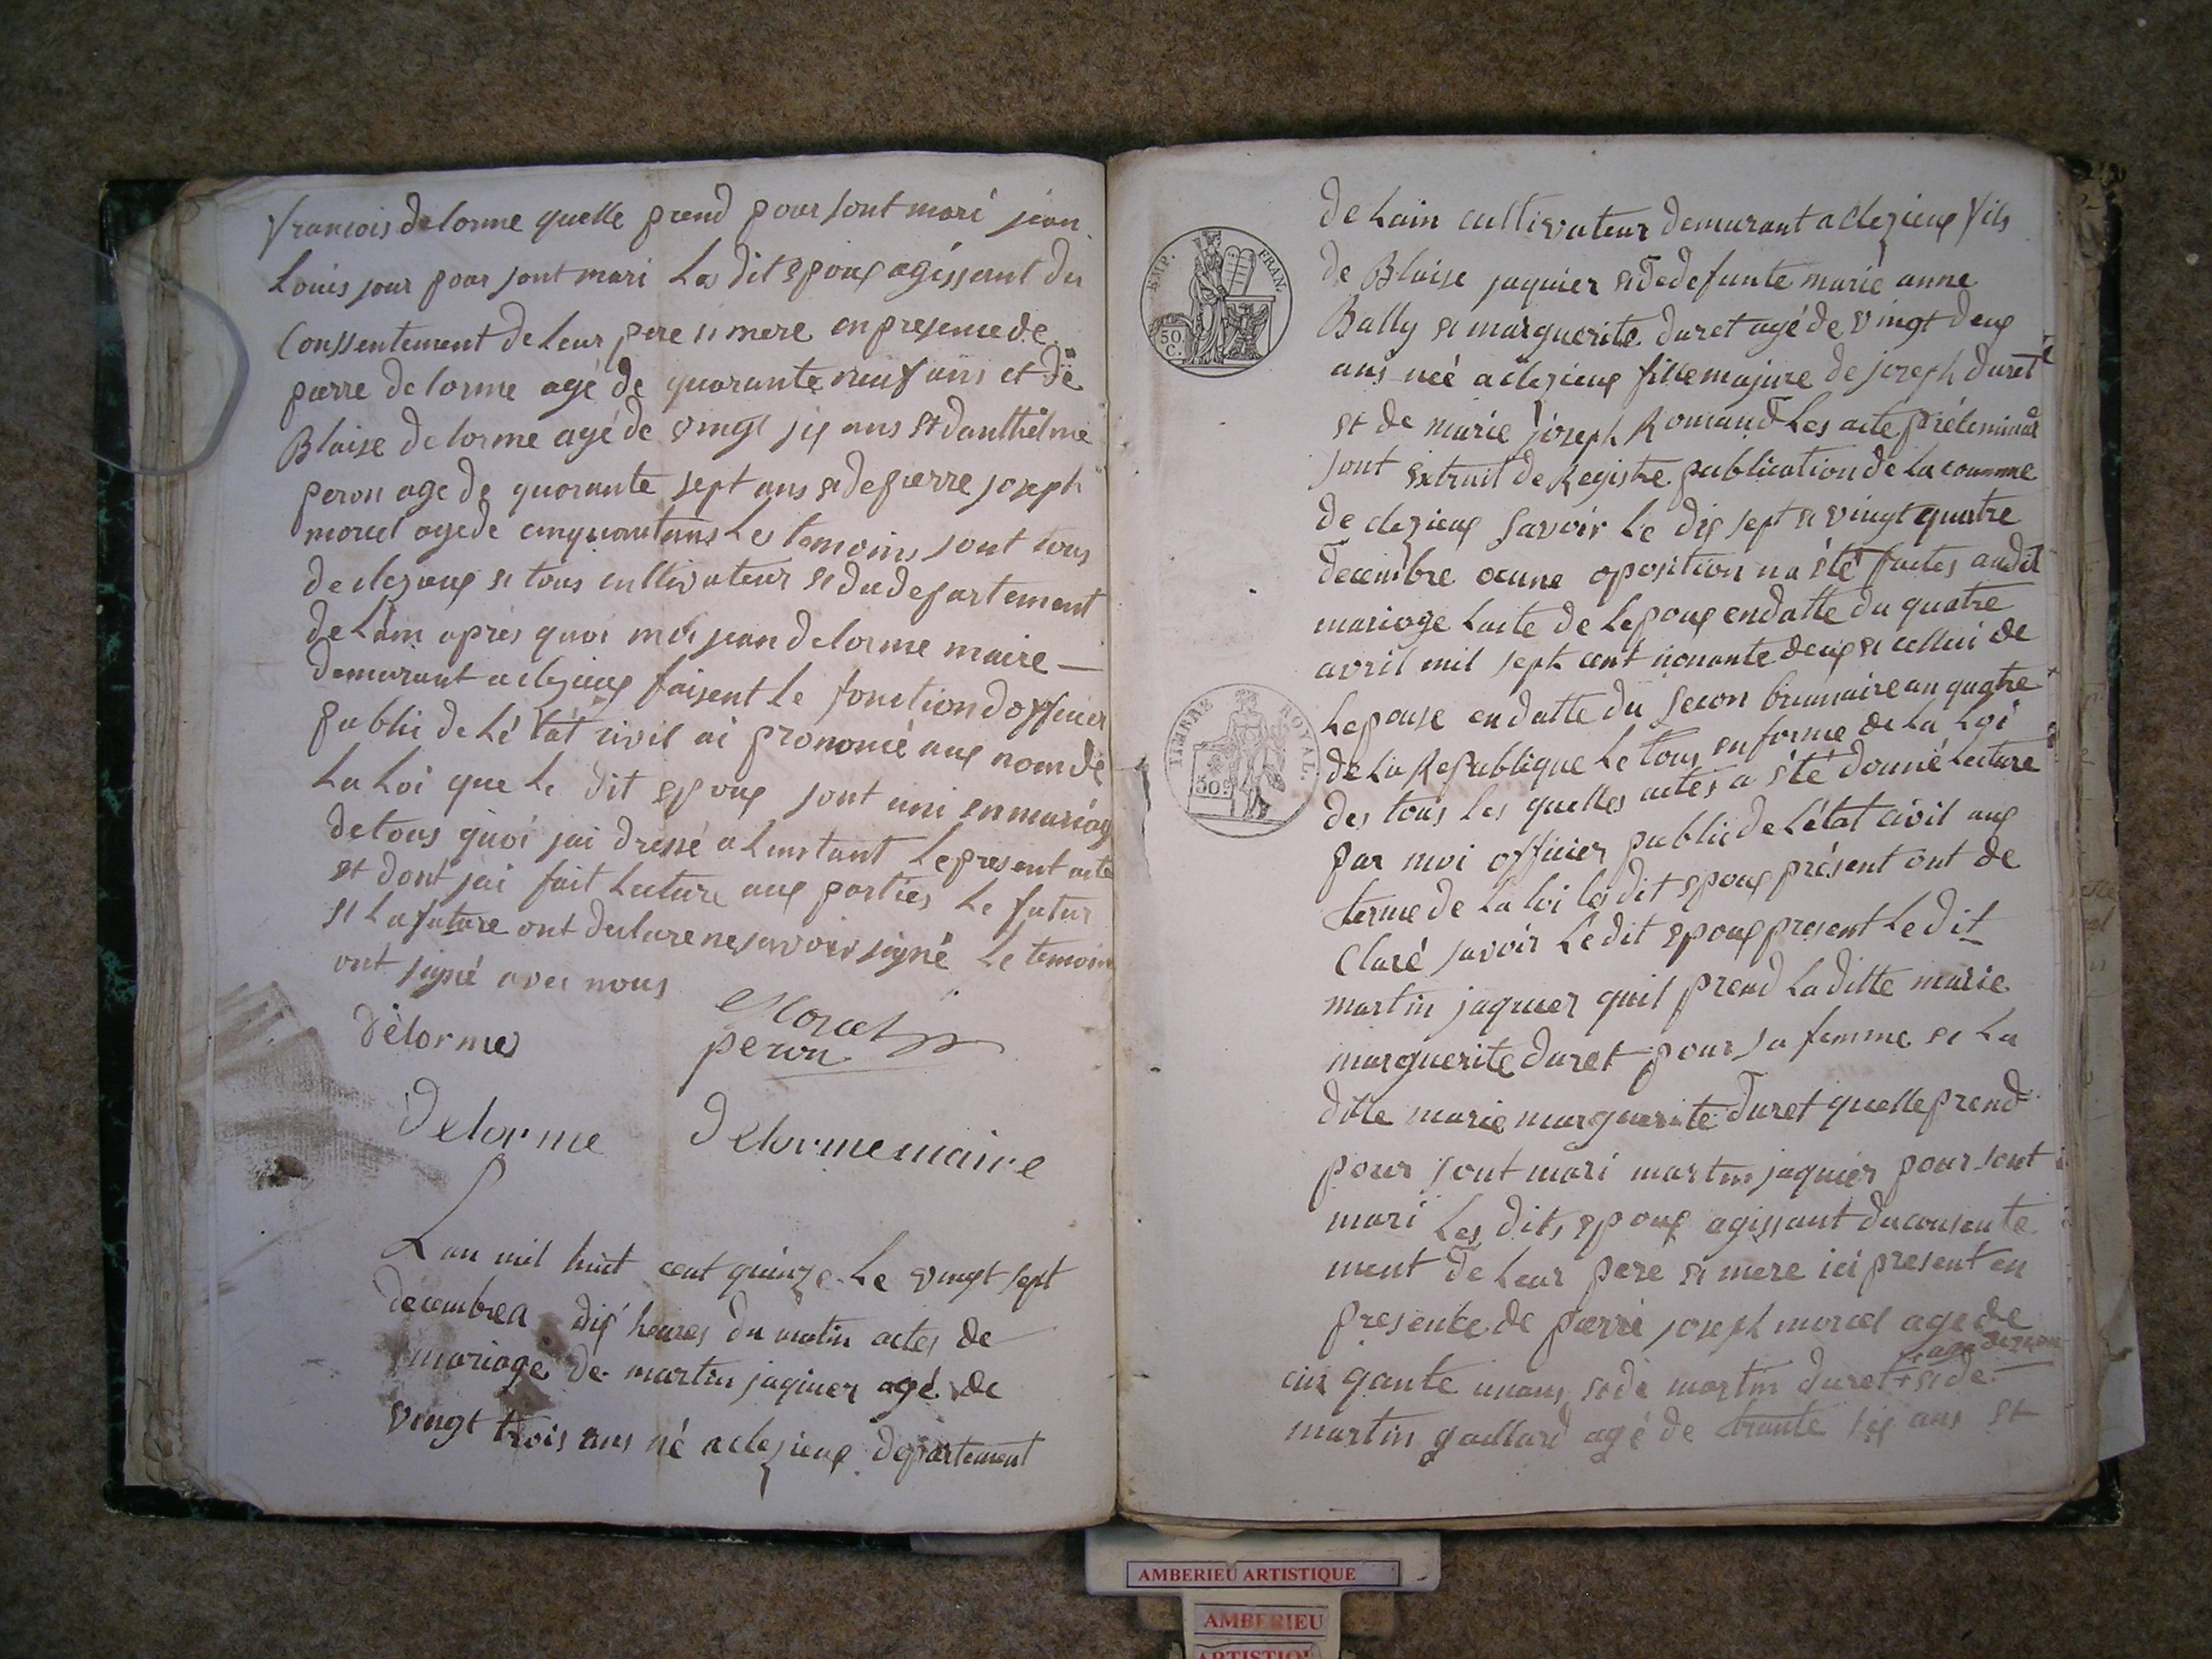 francois delorme quelle prend pour sont mari jean
Louis jour pour sont mari Les dit epoux agissant du
Conssentement de Leur pere et mere en presence de
pierre delorme agé de quarante neuf ans et de
Blaise delorme agé de vingt six ans et danthelme
peron age de quarante sept ans et de pierre joseph
morel age de cinquantans Les temoins sont tous
de clezieux et tous cultivateur et du departement
de Lain apres quoi moi jean delorme maire
demurant a clezieux faisent Le fonction dofficier
public de Létat civil ai prononcé aux nom de
La Loi que Le dit epoux sont uni en mariag
de tous quoi jai dressé a Linstant Le present acte
et dont jai fait Lecture aux parties Le futur
et La future ont declare ne savoir signé Le temoin
ont signé avec nous
delorme
Morel
peron
Delorme
Delorme maire
Lan mil huit cent quinze Le vingt sept
decembre a dix heures du matin actes de
mariage de martin jaquier agé de
vingt trois ans né a clezieux departement
EMP. FRAN.
50 C.
TIMBRE ROYAL.
50 c
de Lain cultivateur demurant a clezieux fils
de Blaise jaquier et de defunte marie anne
Bally et marguerite duret agé de vingt deux
ans neé a clezieux fille majure de joseph duret
et de marie joseph Romand Les acte préleminair
sont extrait de Registre publication de La comune
de clezieux savoir Le dix sept et vingt quatre
decembre ocune oposition na été faites audit
mariage Lacte de Lepoux en datte du quatre
avril mil sept cent nonante deux et cellui de
Lepouse en datte du secon brumaire an quatre
de La Republique Le tous en forme de La Loi
des tous Les quelles actes a été donné Lecture
par moi officier public de Létat civil aux
terme de La loi les dit epoux présent ont de
claré savoir Le dit epoux present Le dit
martin jaquier quil prend La ditte marie
marguerite duret pour sa femme et La
ditte marie marguerite duret quelle prend
pour sont mari martin jaquier pour sont
mari Les dits epoux agissant du consente
ment de Leur pere et mere ici present en
presente de pierre joseph morel age de
cinqante unans et de martin duret + et de
martin gaillard agé de trante six ans et
AMBERIEU ARTISTIQUE
AMBERIEU
ARTISTIQUE